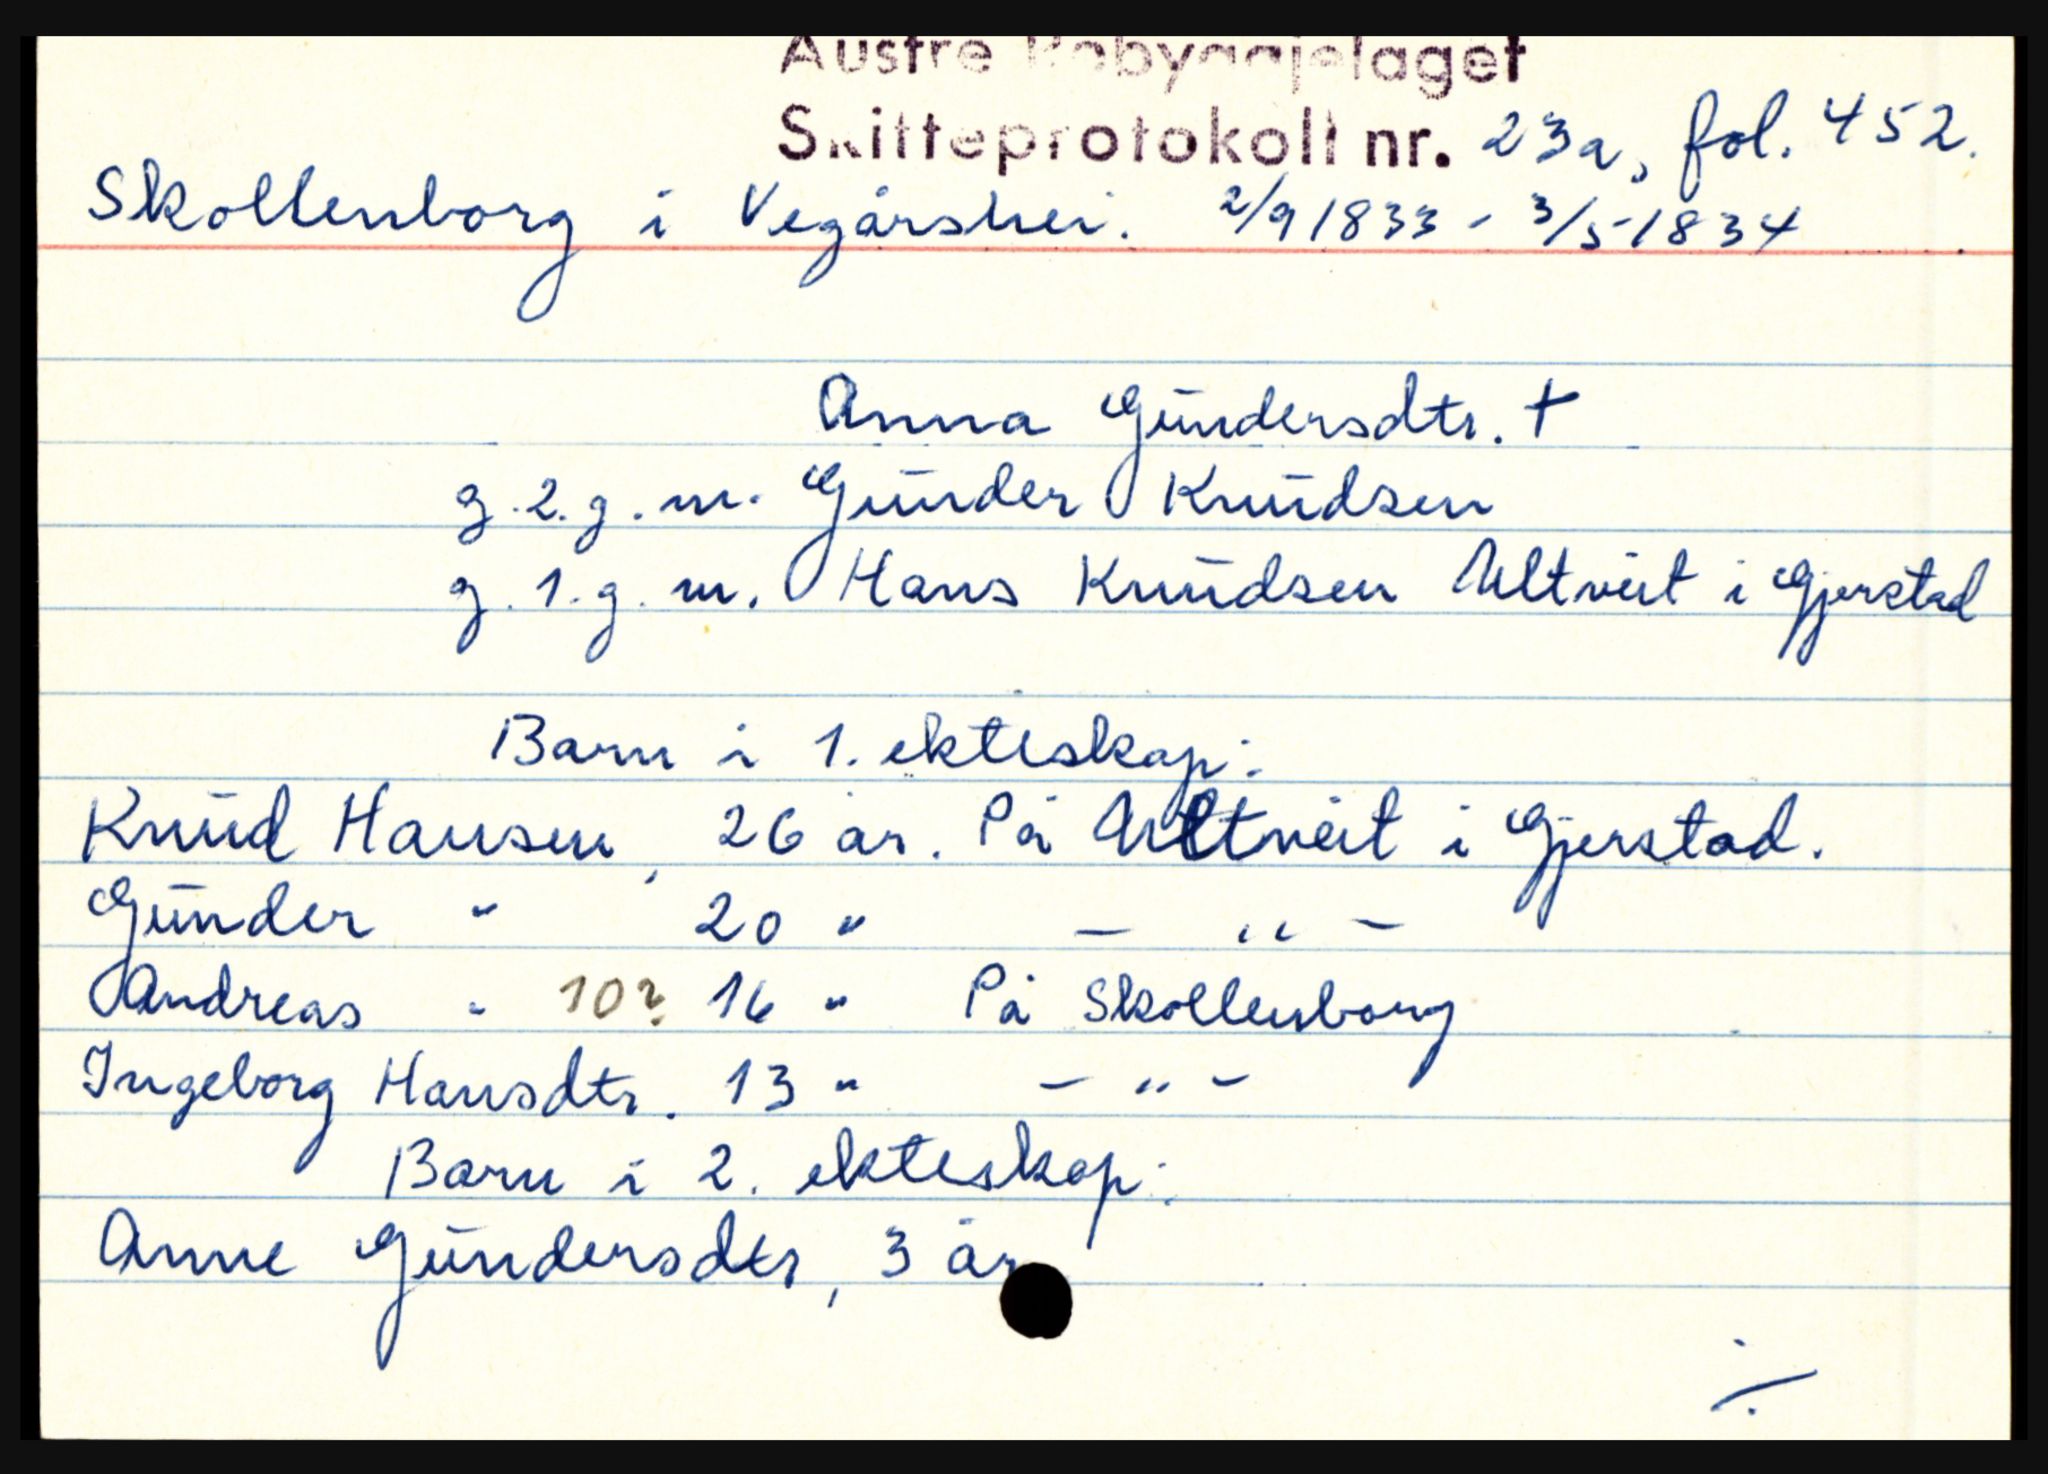 Austre Robyggjelaget
Skifteprotokoll nr. 23a, fol. 452.
Skollenborg i Vegårshei. 2/9 1833 - 3/5-1834
Anna Gundersdtr. +
g. 2. g. m. Gunder Knudsen
g. 1. g. m. Hans Knudsen Ultveit i Gjerstad
Barn i 1. ekteskap:
Knud Hansen, 26 år. På Ultveit i Gjerstad.
Gunder " 20 " - " -
Andreas " 10? 16 " På Skollenborg
Ingeborg Hansdtr. 13 " - " -
Barn i 2. ekteskap:
Anne Gundersdtr, 3 år
÷